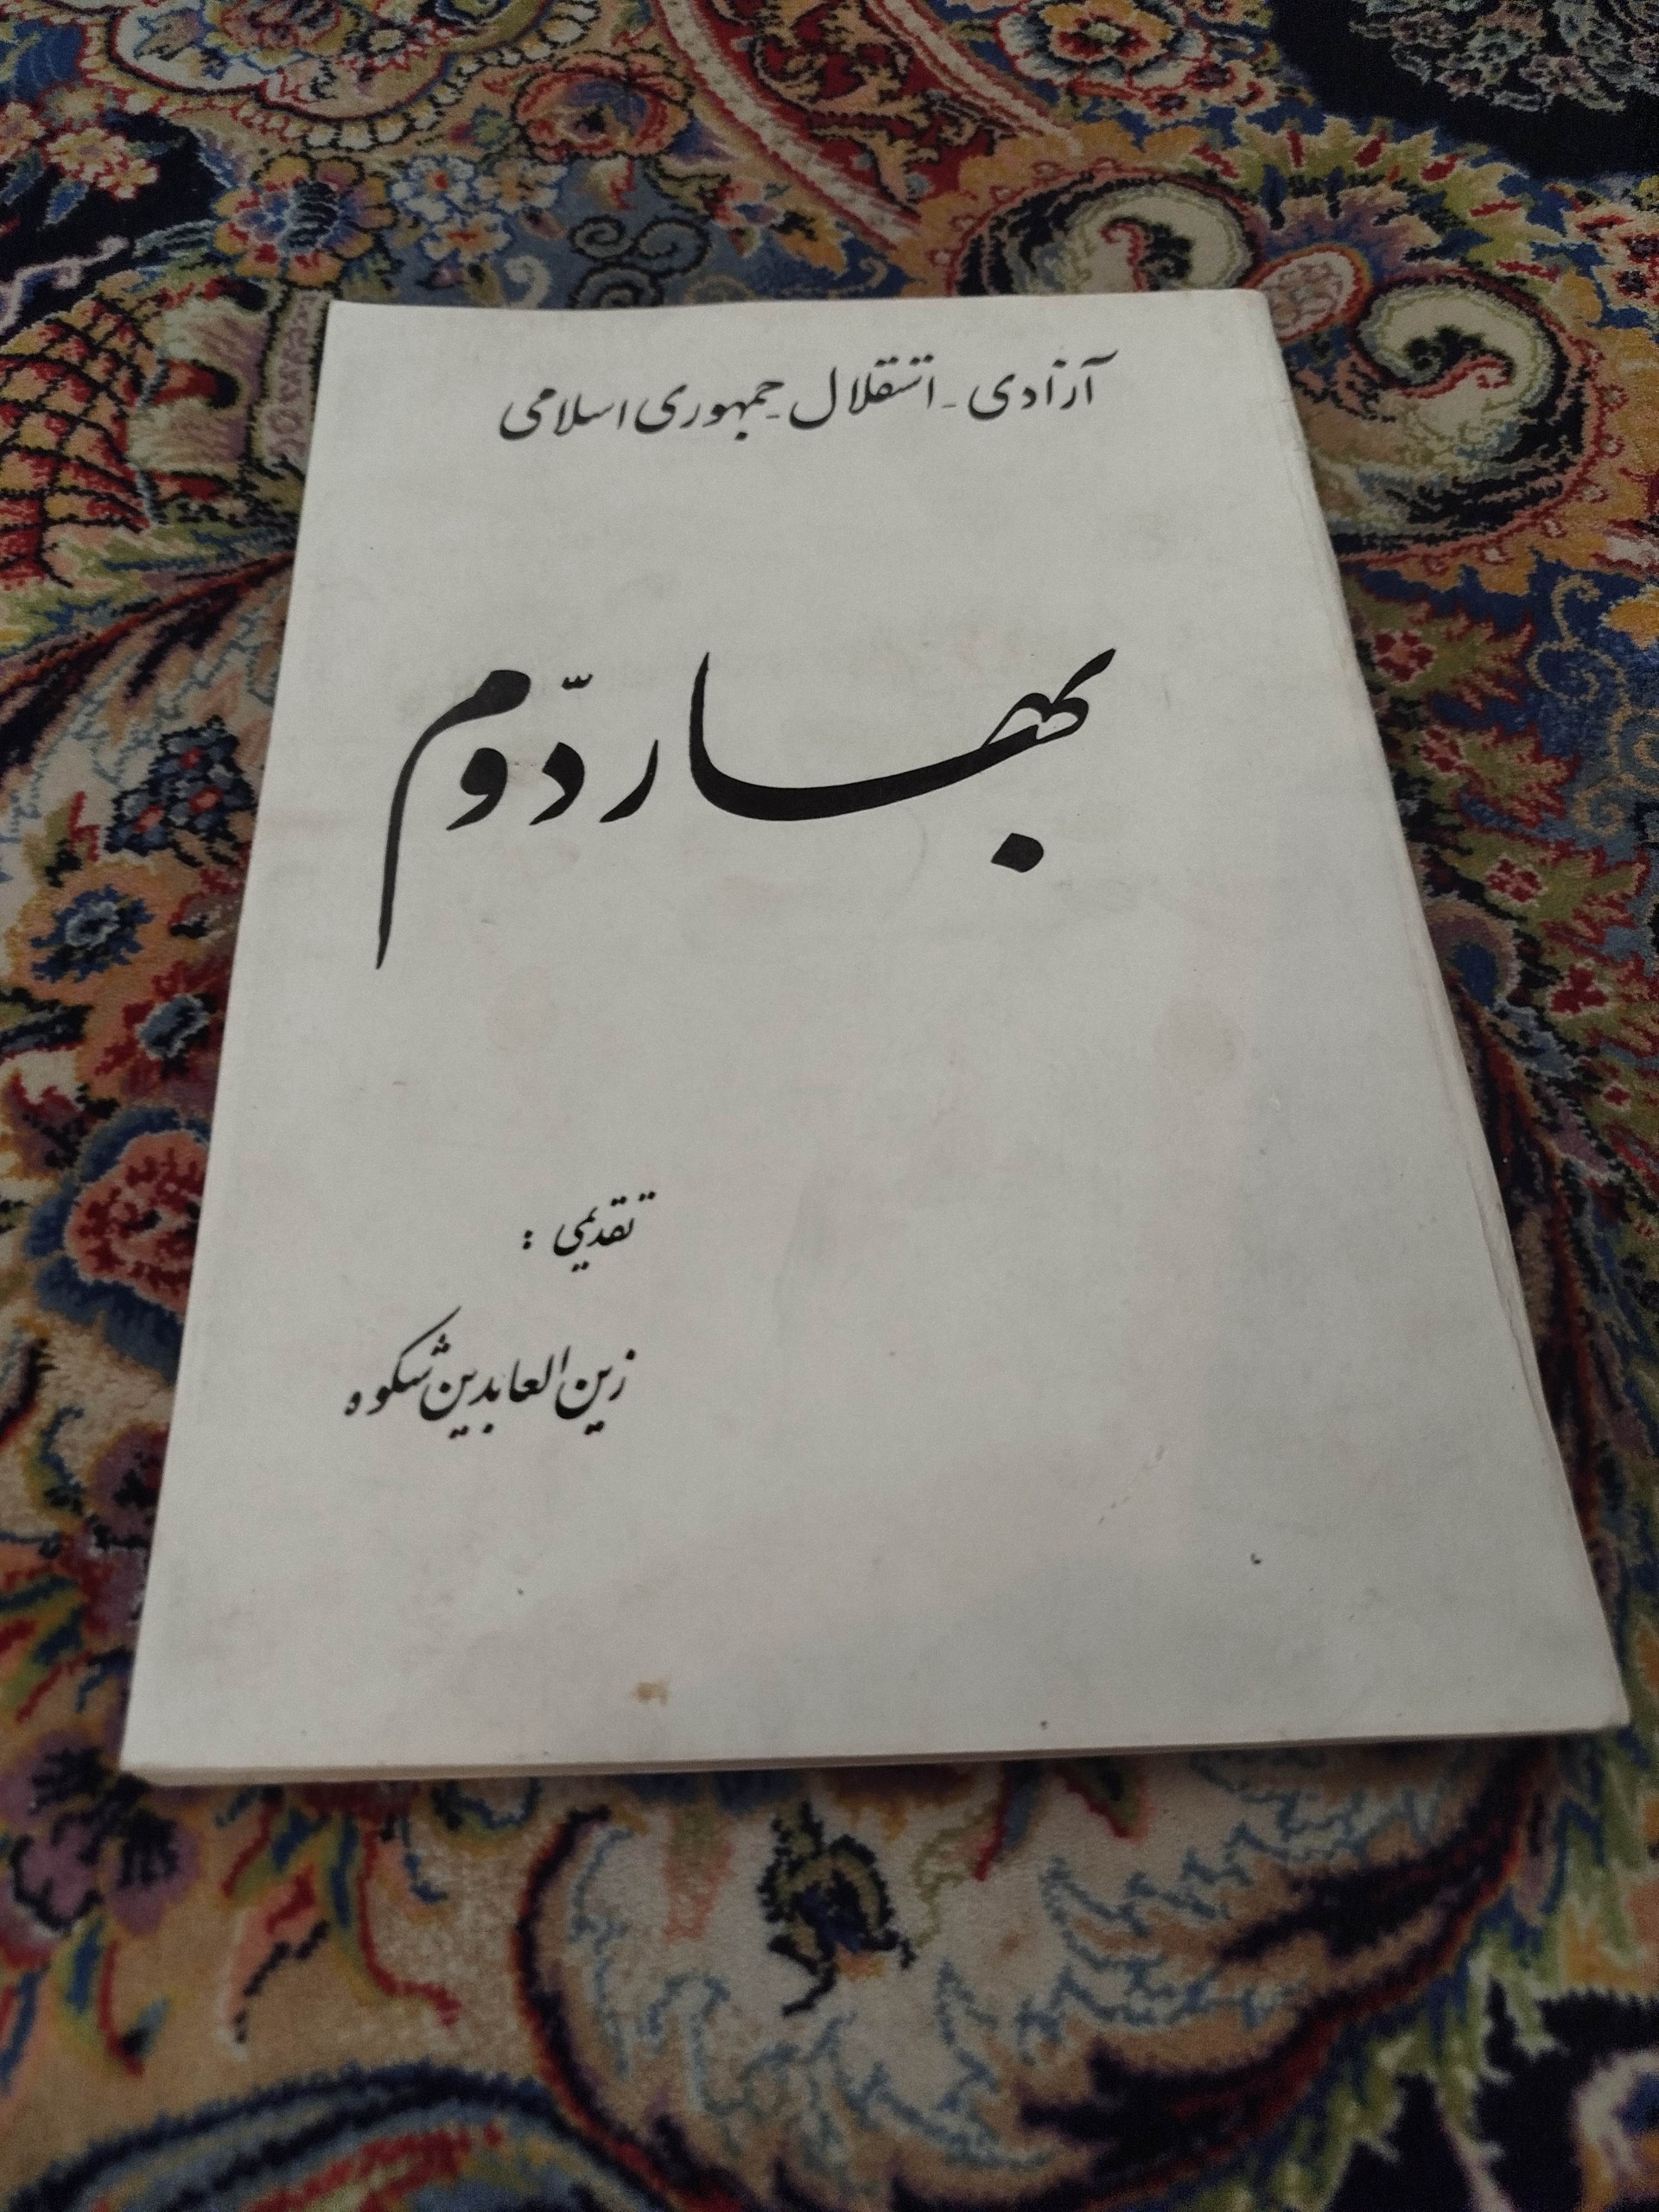 آزادی - استقلال - جمهوری اسلامی
بهار دّوم
تقدیمی :
زین العابدین شکوه